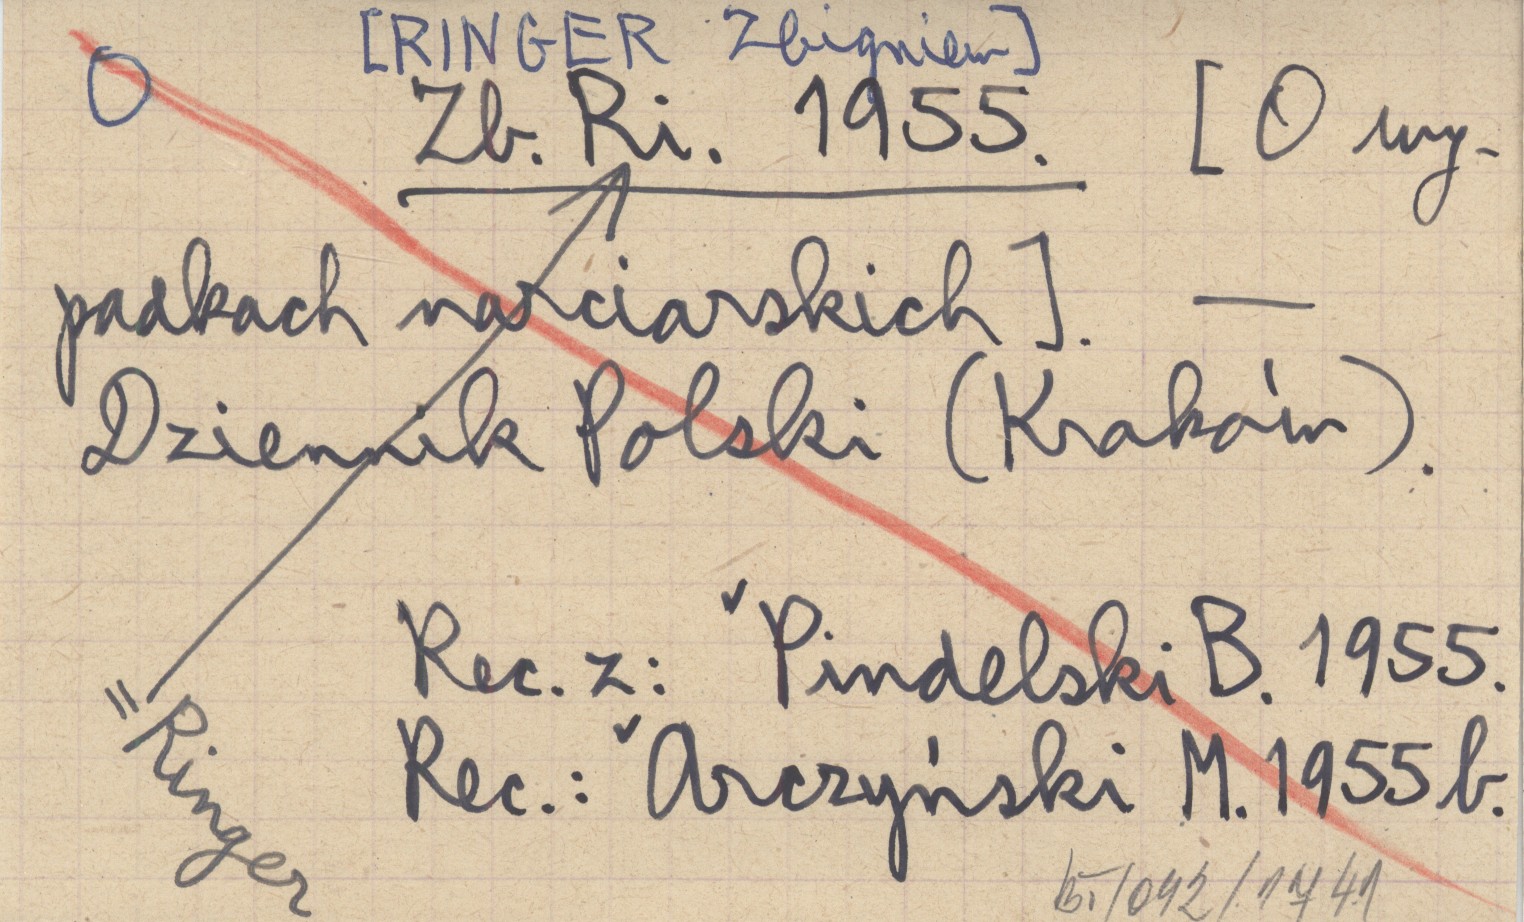 [RINGER Zbigniew]
O
Zb. Ri. 1955. [O wy-
padkach narciarskich]. —
Dziennik Polski (Kraków).
Rec. z: ✓Pindelski B. 1955.
= Ringer
Rec.: ✓Arczyński M. 1955 b.
/092/1741